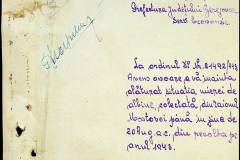 Prefectura Județului Berezovca
Serv. Economic
La ordinul Nr. 8492/943
Avem onoare a vă înainta
alăturat situația mierei de
albine, colectată, din raionul
Mostovoi până în ziua de
20 Aug. a.c. din recolta pe
anul 1943.